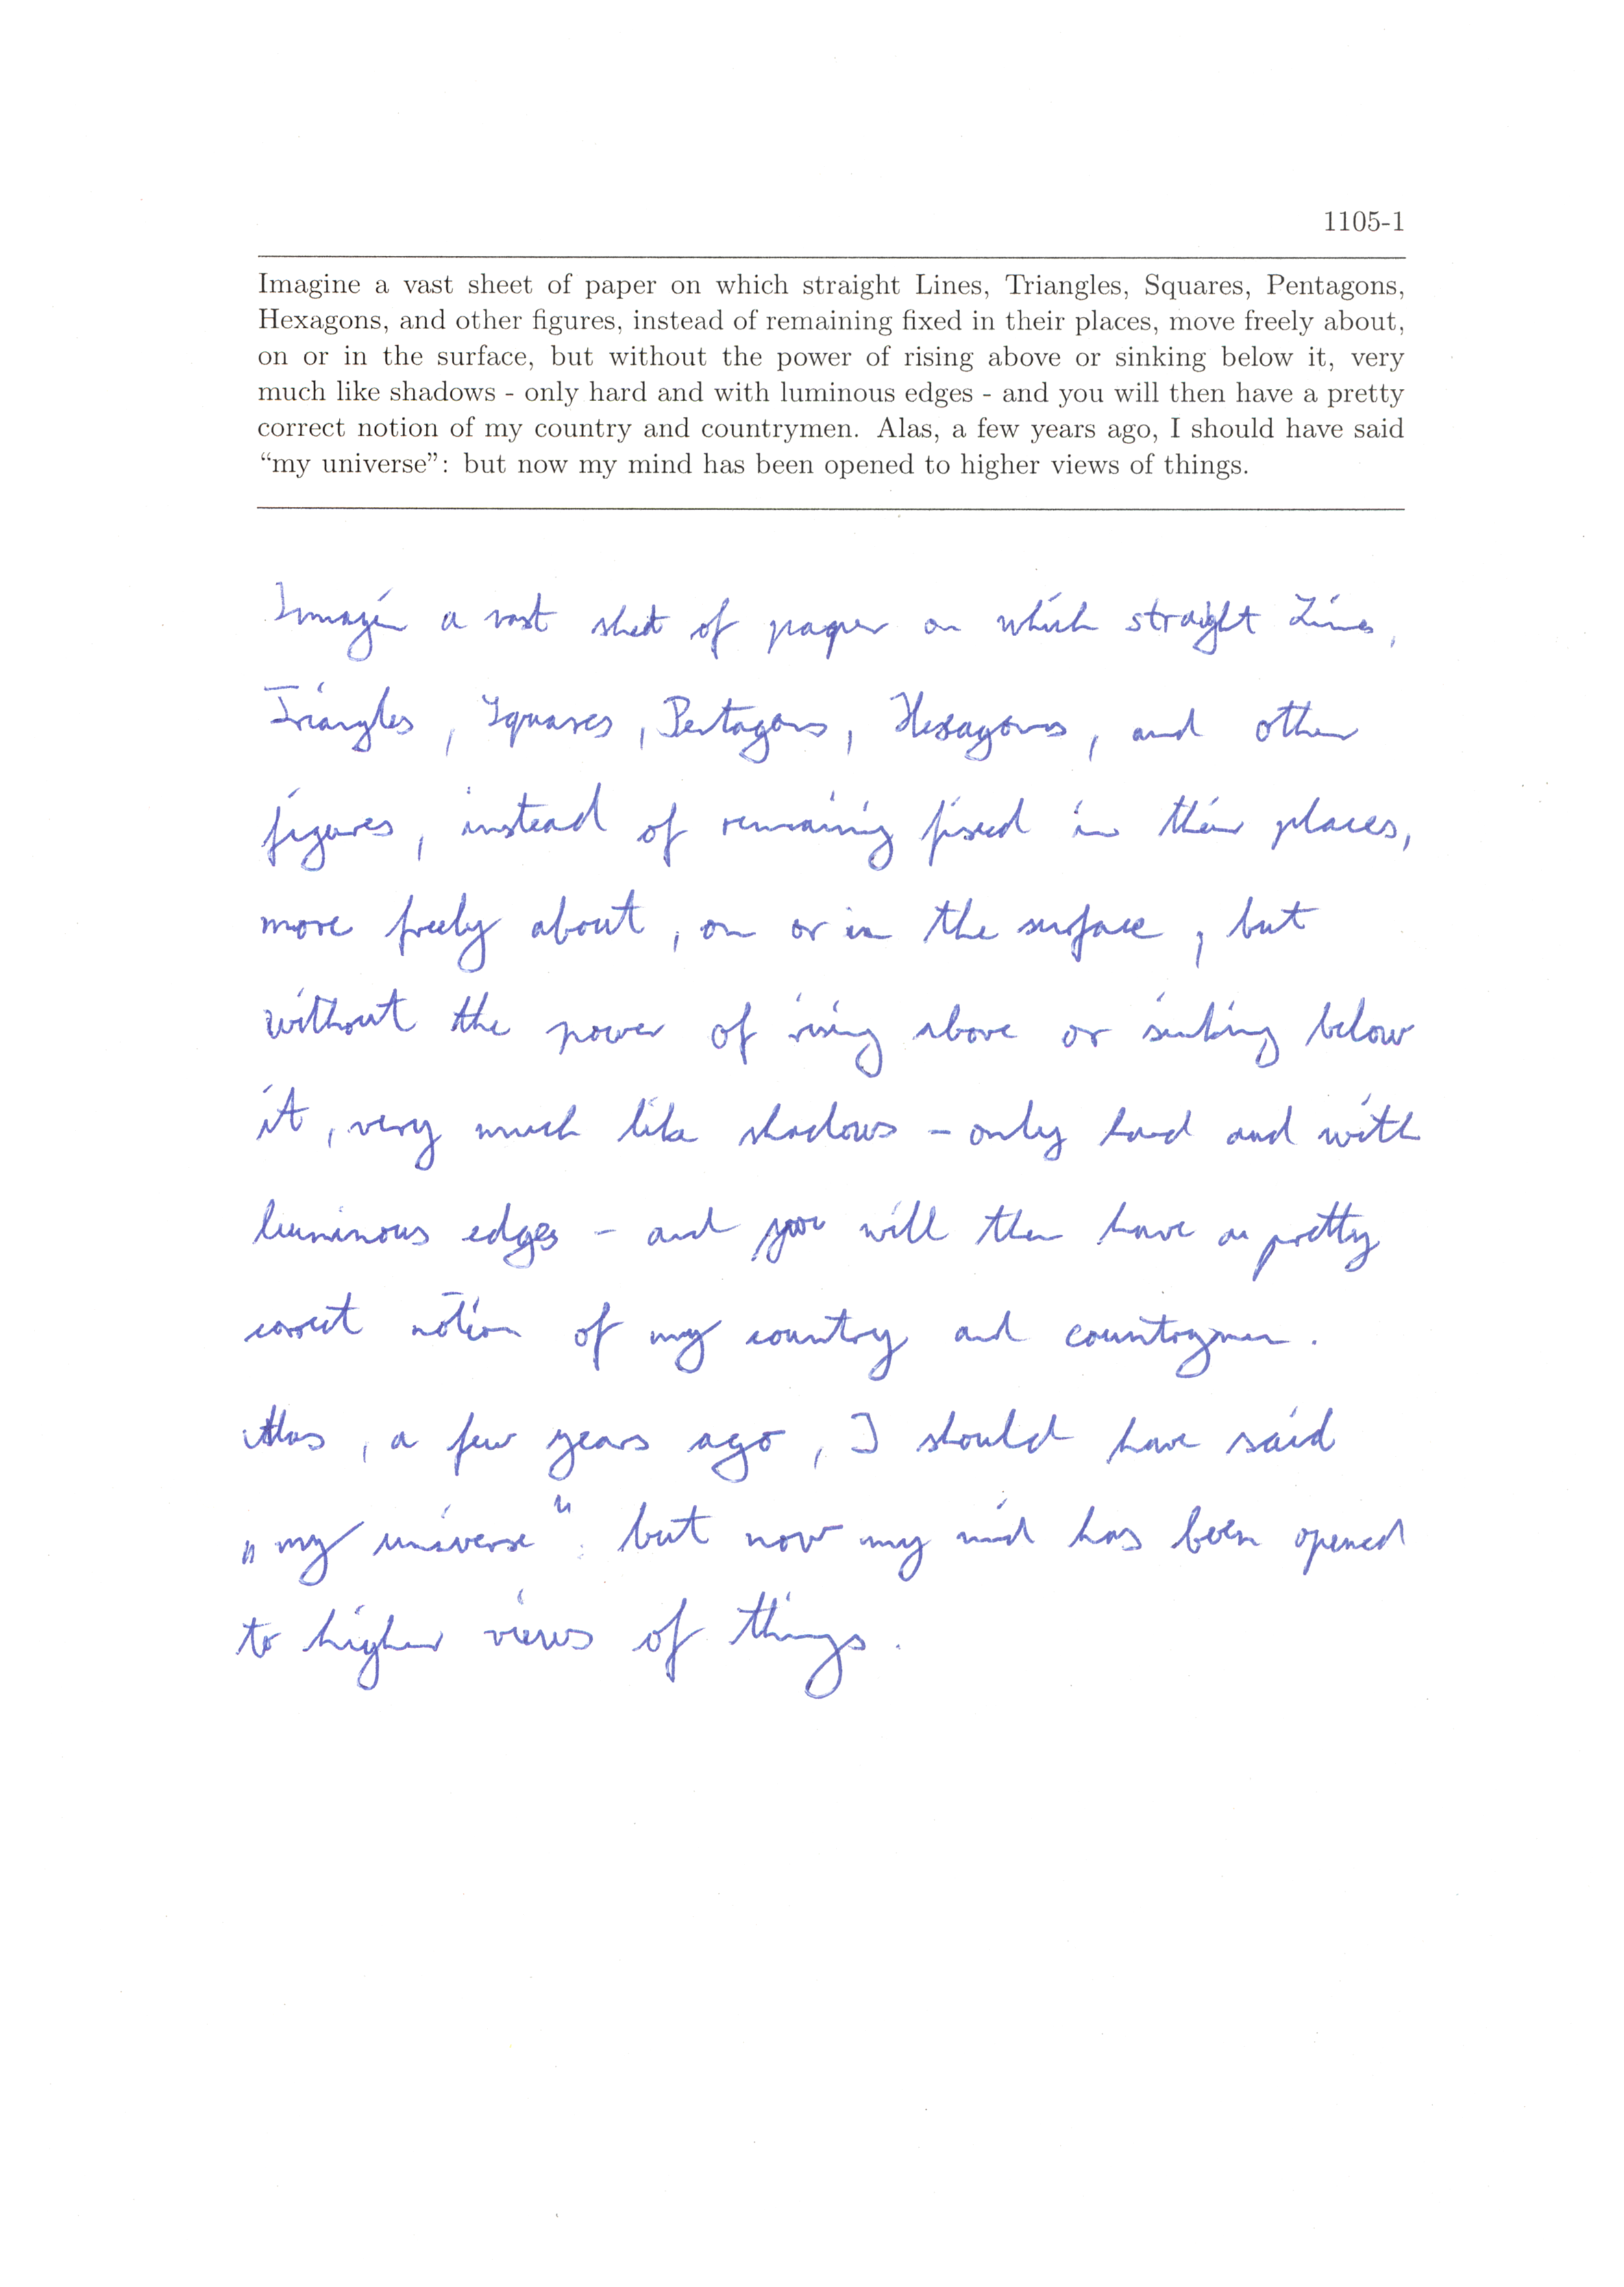 1105-1
Imagine a vast sheet of paper on which straight Lines, Triangles, Squares, Pentagons,
Hexagons, and other figures, instead of remaining fixed in their places, move freely about,
on or in the surface, but without the power of rising above or sinking below it, very
much like shadows - only hard and with luminous edges - and you will then have a pretty
correct notion of my country and countrymen. Alas, a few years ago, I should have said
“my universe”: but now my mind has been opened to higher views of things.
Imagin a vast sheet of paper on which straight Lines,
Triangles, Squares, Pentagons, Hexagons, and other
figures, instead of remaining fixed in their places,
move freely about, on or in the surface, but
without the power of rising above or sinking below
it, very much like shadows - only hard and with
luminous edges - and you will then have a pretty
correct notion of my country and countrymen.
Alas, a few years ago, I should have said
„my universe“: but now my mind has been opened
to higher views of things.